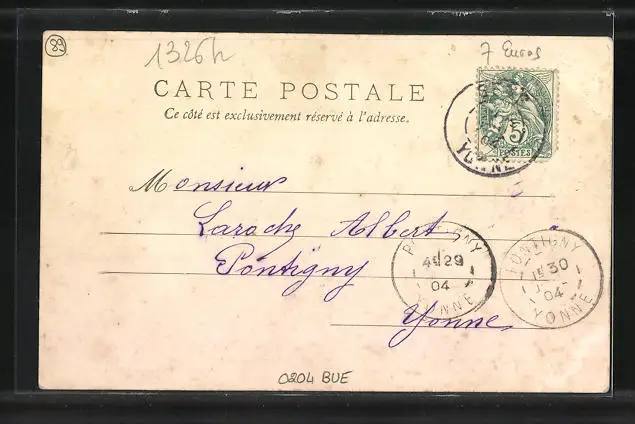 89
1326h
7 Euros
CARTE POSTALE
Ce côté est exclusivement réservé à l'adresse.
5
POSTES
04
YONNE
Monsieur
Laroche Albert
Pontigny
Yonne
PONTIGNY
29
04
YONNE
PONTIGNY
30
04
YONNE
0204 BUE